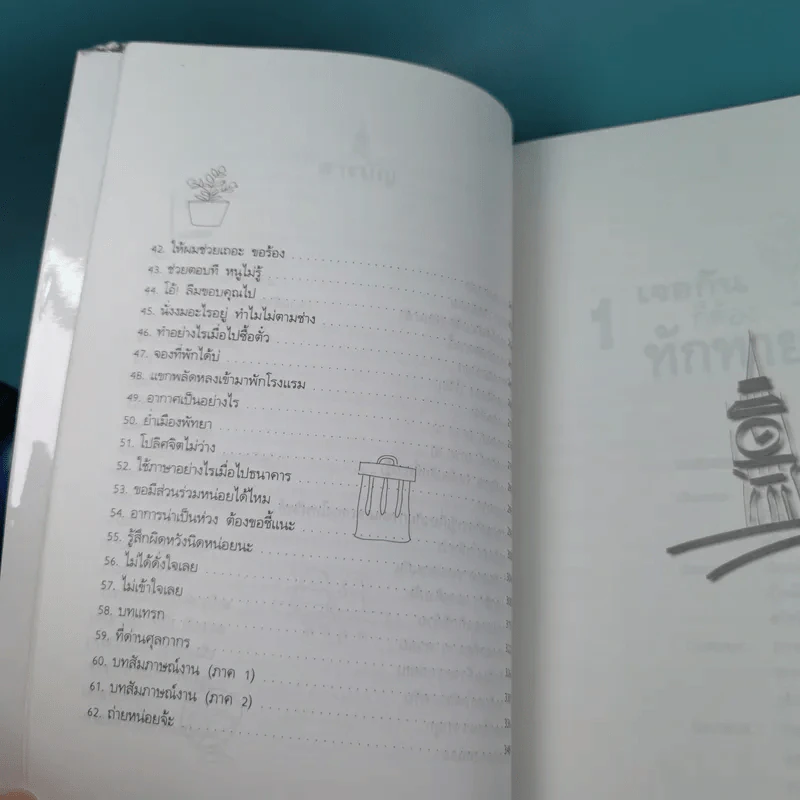 42. ให้ผมช่วยเถอะ ขอร้อง
43. ช่วยตอบที หนูไม่รู้
44. โอ้! ลืมขอบคุณไป
45. นั่งงมอะไรอยู่ ทำไมไม่ตามช่าง
46. ทำอย่างไรเมื่อไปซื้อตั๋ว
47. จองที่พักได้ป่
48. แขกพลัดหลงเข้ามาพักโรงแรม
49. อากาศเป็นอย่างไร
50. ย่ำเมืองพัทยา
51. โปลิศจิตไม่ว่าง
52. ใช้ภาษาอย่างไรเมื่อไปธนาคาร
53. ขอมีส่วนร่วมหน่อยได้ไหม
54. อาการน่าเป็นห่วง ต้องขอชี้แนะ
55. รู้สึกผิดหวังนิดหน่อยนะ
56. ไม่ได้ดั่งใจเลย
57. ไม่เข้าใจเลย
58. บทแทรก
59. ที่ด่านศุลกากร
60. บทสัมภาษณ์งาน (ภาค 1)
61. บทสัมภาษณ์งาน (ภาค 2)
62. ถ่ายหน่อยจ้ะ
1
เจอกัน
ทักทาย